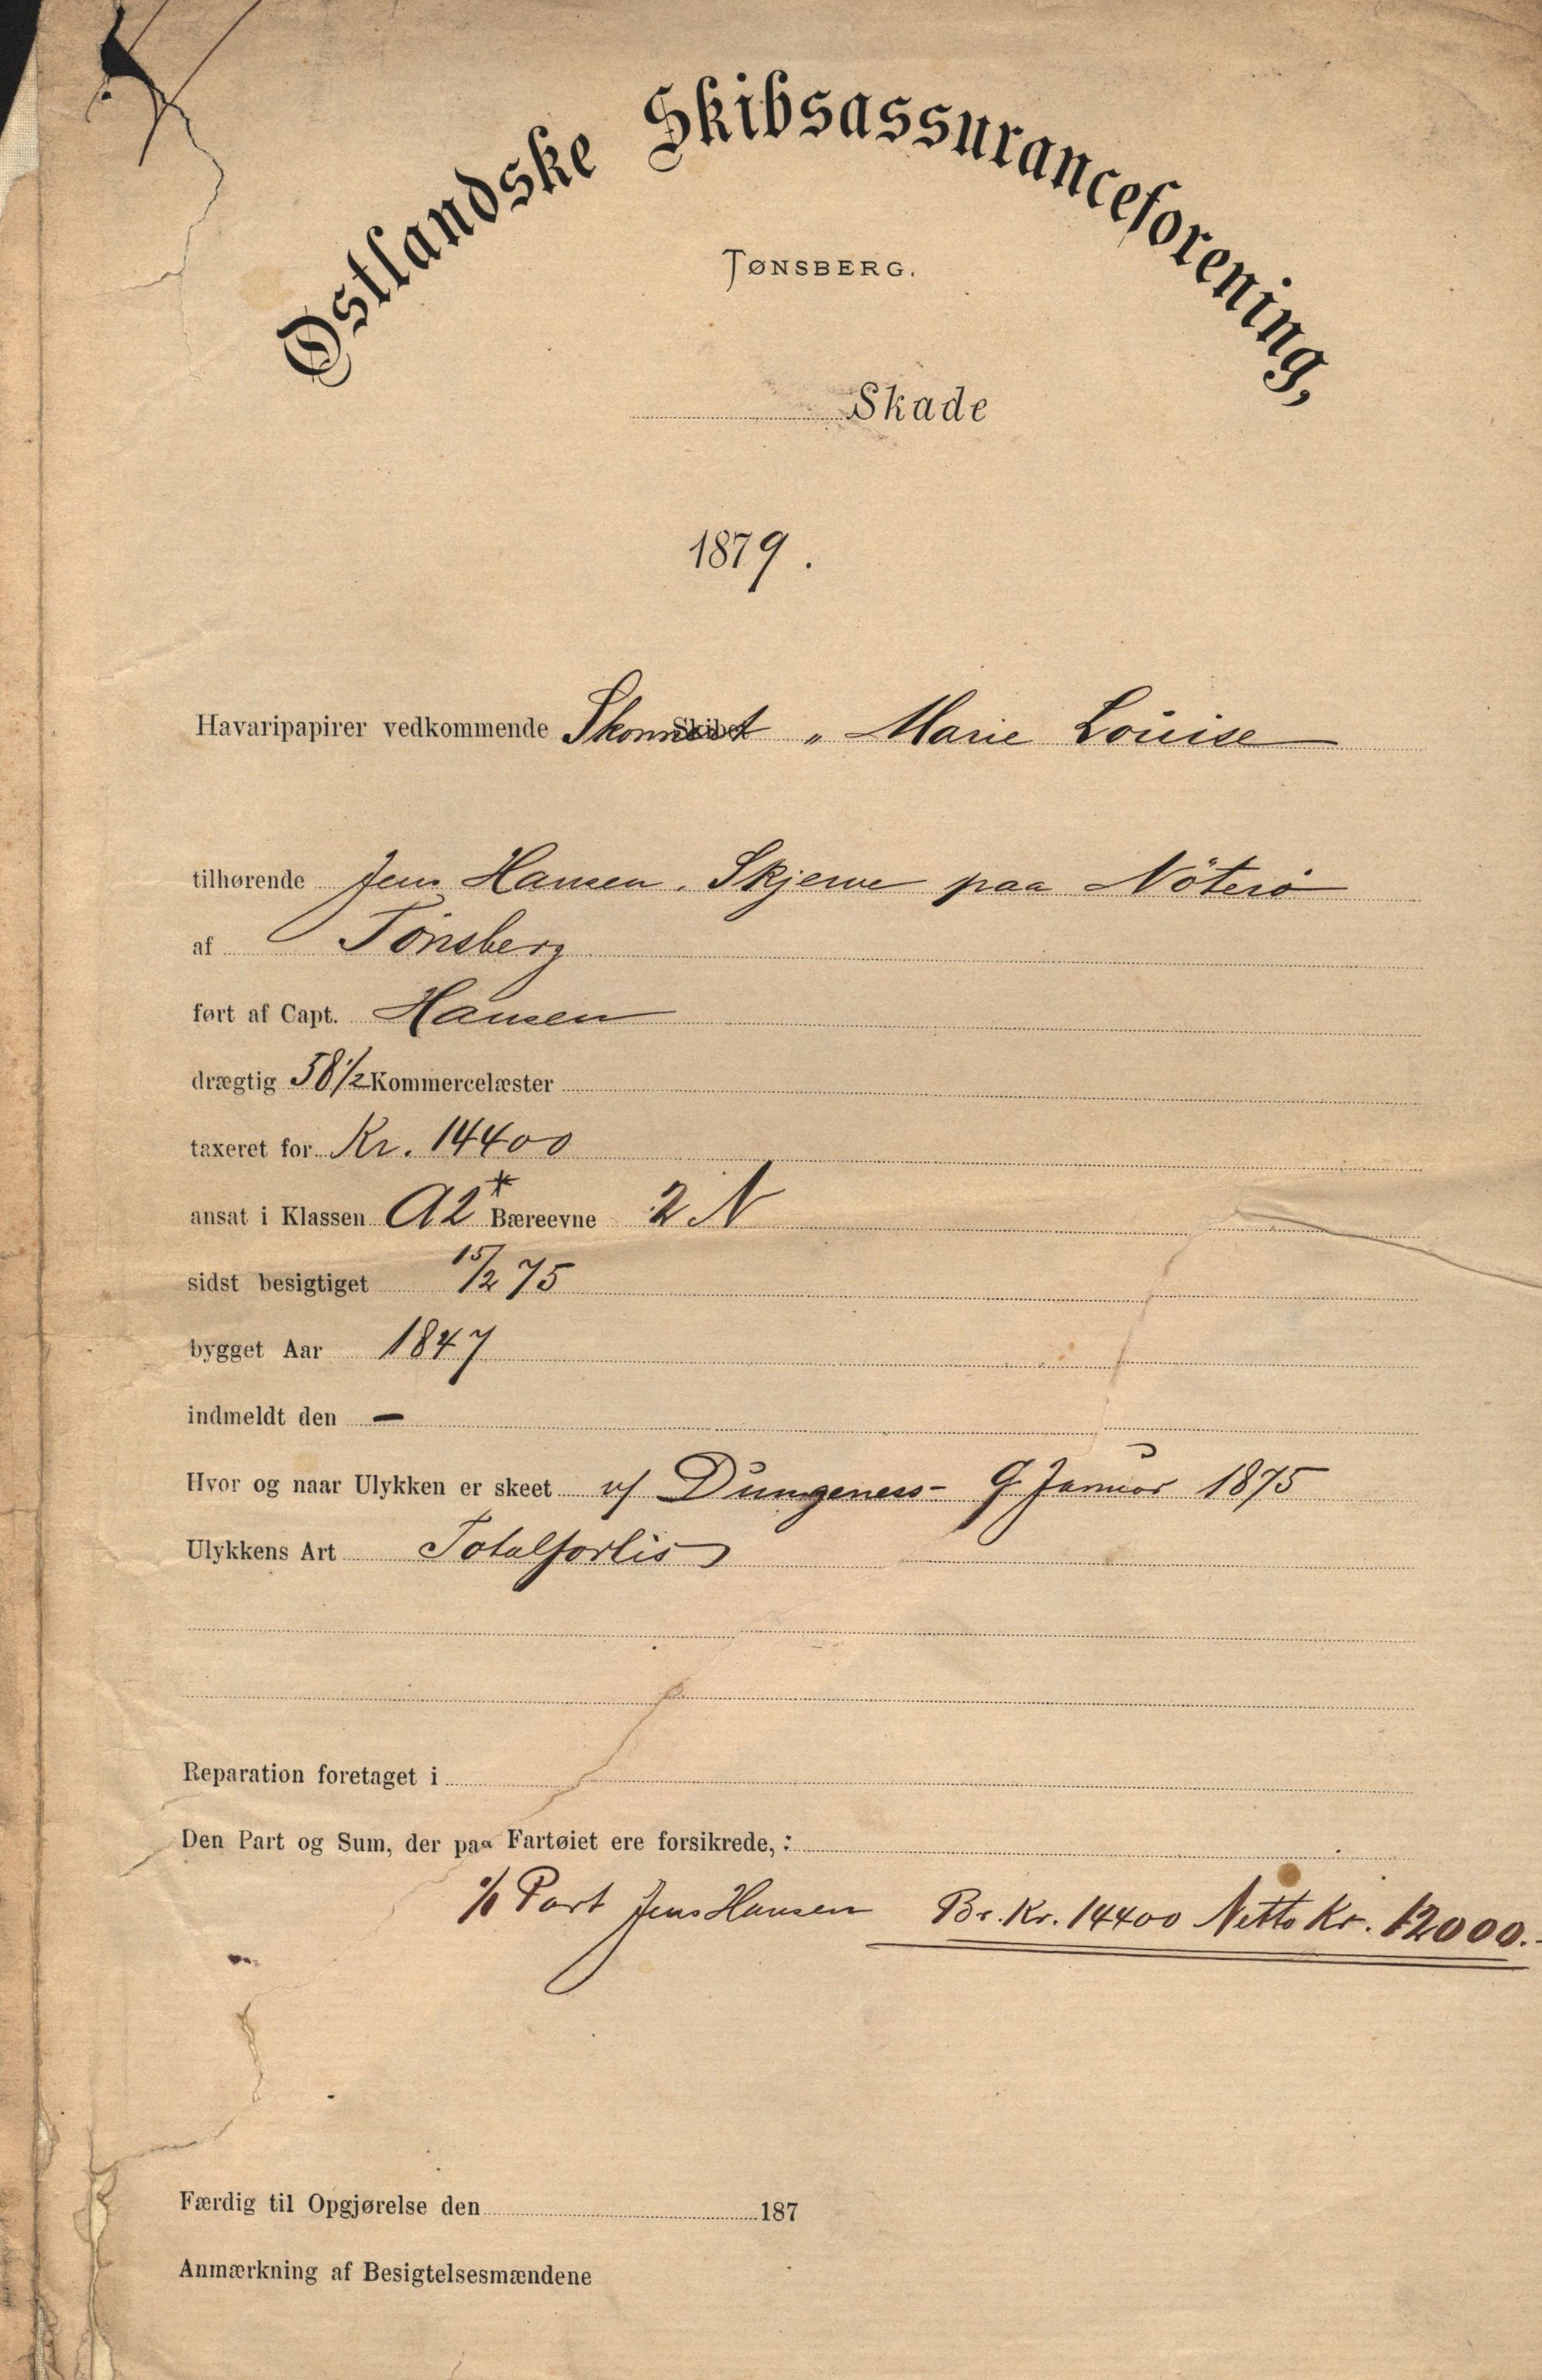 Østlandske Skibsassuranceforening,
TØNSBERG.
Skade
1879.
Havaripapirer vedkommende Skonnert „ Marie Louise
tilhørende Jens Hansen. Skjerve paa Nöterö
af Tønsberg
ført af Capt. Hansen
drægtig 58 1/2 Kommercelæster
taxeret for Kr. 14400
ansat i Klassen A2* Bæreevne 2 N
sidst besigtiget 15/2 75
bygget Aar 1847
indmeldt den —
Hvor og naar Ulykken er skeet v/ Dungeness - 9 Januar 1875
Ulykkens Art Totalforlis
Reparation foretaget i
Den Part og Sum, der paa Fartøiet ere forsikrede, :
1/1 Part Jens Hansen Br. Kr. 14400 Netto Kr. 12000.-
Færdig til Opgjørelse den 187
Anmærkning af Besigtelsesmændene